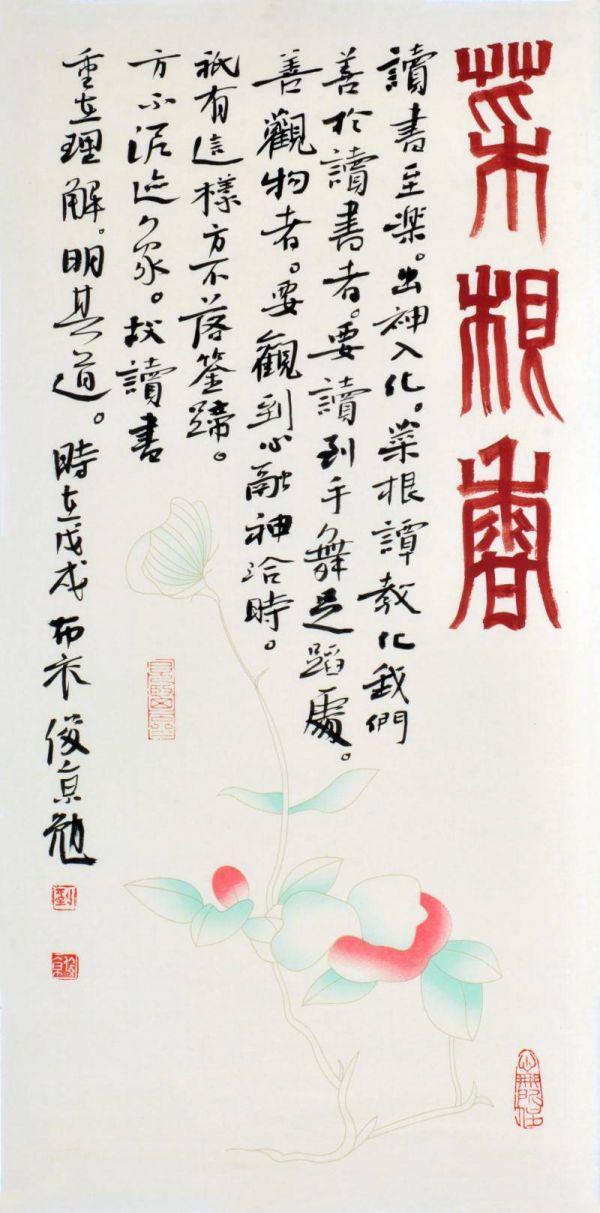 菜根香
讀書至楽。出神入化。菜根譚教化我們
善於讀書者。要讀到手舞足蹈處。
善觀物者。要觀到心融神洽時。
祇有這樣方不落筌蹄。
方不泥迹象。故讀書
重在理解。明其道。時在戊戌布衣俊京勉
劉
俊京